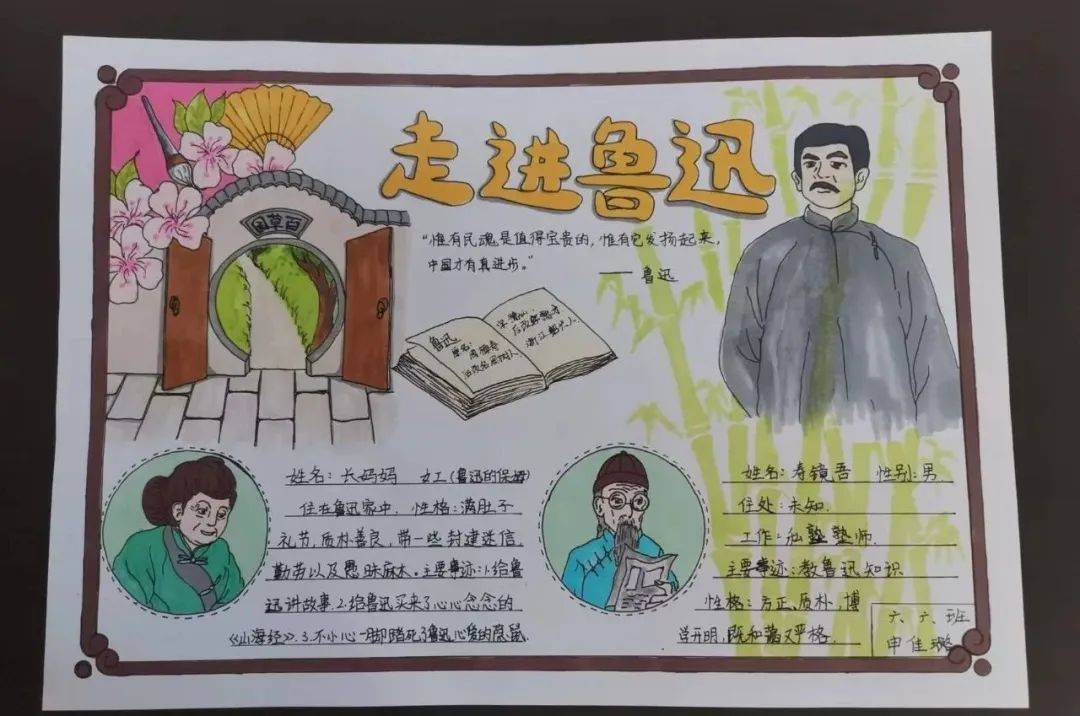 走进鲁迅
百草园
“惟有民魂是值得宝贵的，惟有它发扬起来，
中国才有真进步。”
—— 鲁迅
鲁迅
原名：
周樟寿
后改名周树人
字豫山
后改豫才
浙江绍兴人
姓名：长妈妈 女工（鲁迅的保姆）
住在鲁迅家中. 性格：满肚子
礼节，质朴善良，带一些封建迷信
勤劳以及愚昧麻木。主要事迹：1.给鲁
迅讲故事 2.给鲁迅买来了心心念念的
《山海经》. 3.不小心一脚踏死了鲁迅心爱的隐鼠
姓名：寿镜吾 性别：男.
住处：未知.
工作：私塾塾师.
主要事迹：教鲁迅知识
性格：方正、质朴、博
学开明，既和蔼又严格.
六. 六. 班
申佳璐